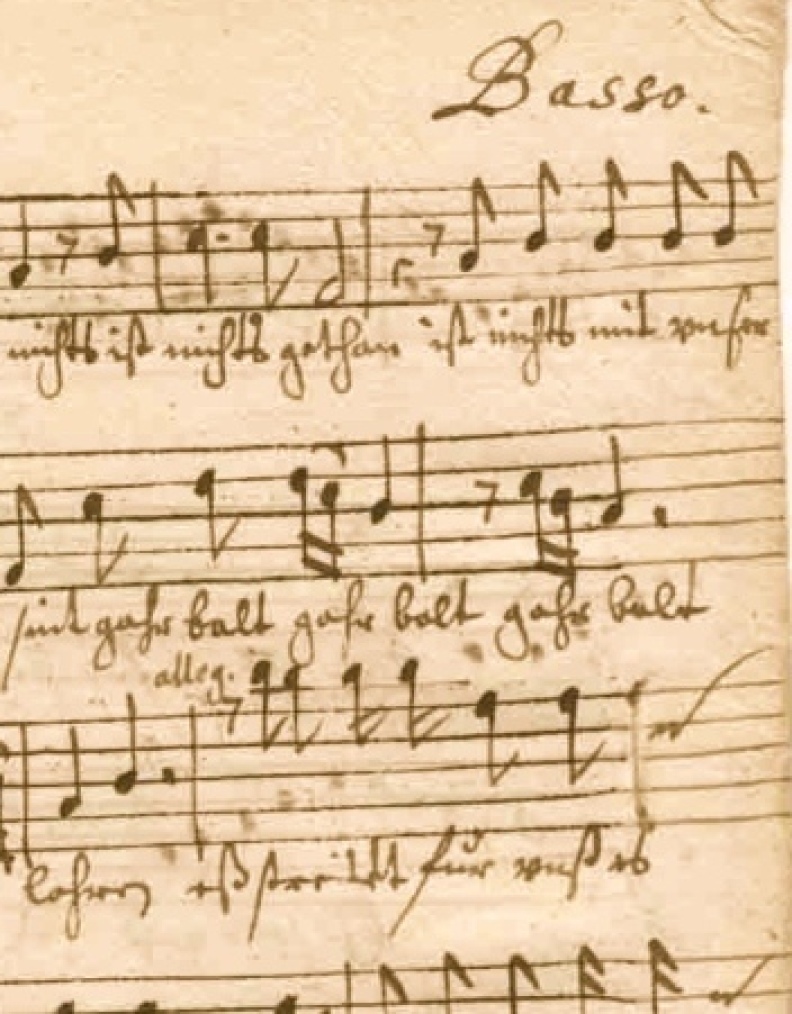 Basso.
nichts ist nichts gethan ist nichts mit unser
sint gahr balt gahr balt gahr balt
alleg.
lohren eß streitet für unß es